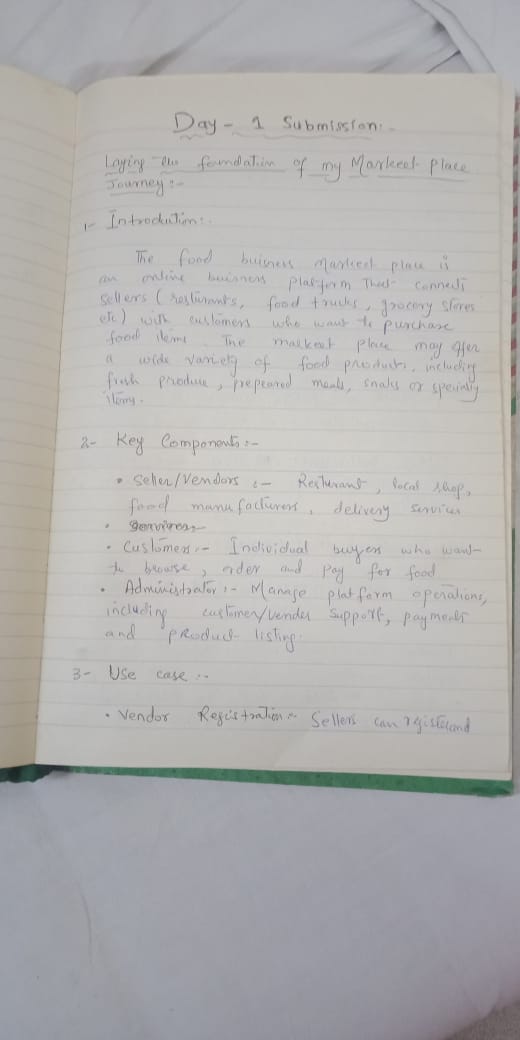 Day - 1 Submission:-
Laying the foundation of my Markeet place
Journey:-
1- Introdution:-
The food buisness markeet place is
an online buisness platform that connects
sellers (resturants, food trucks, grocery stores
etc) with customers who want to purchase
food items. The markeet place may offer
a wide variety of food products, including
fresh produce, prepeared meals, snaks or specialy
items.
2- Key Components:-
• Seller/Vendors :- Resturant, local shop,
food manufacturers, delivery services
• Services
• Customers:- Individual buyers who want
to browse, order and pay for food
• Administrator:- Manage platform operations,
including customer/vender support, payments
and product listing.
3- Use case :-
• Vendor Registration:- Sellers can register and